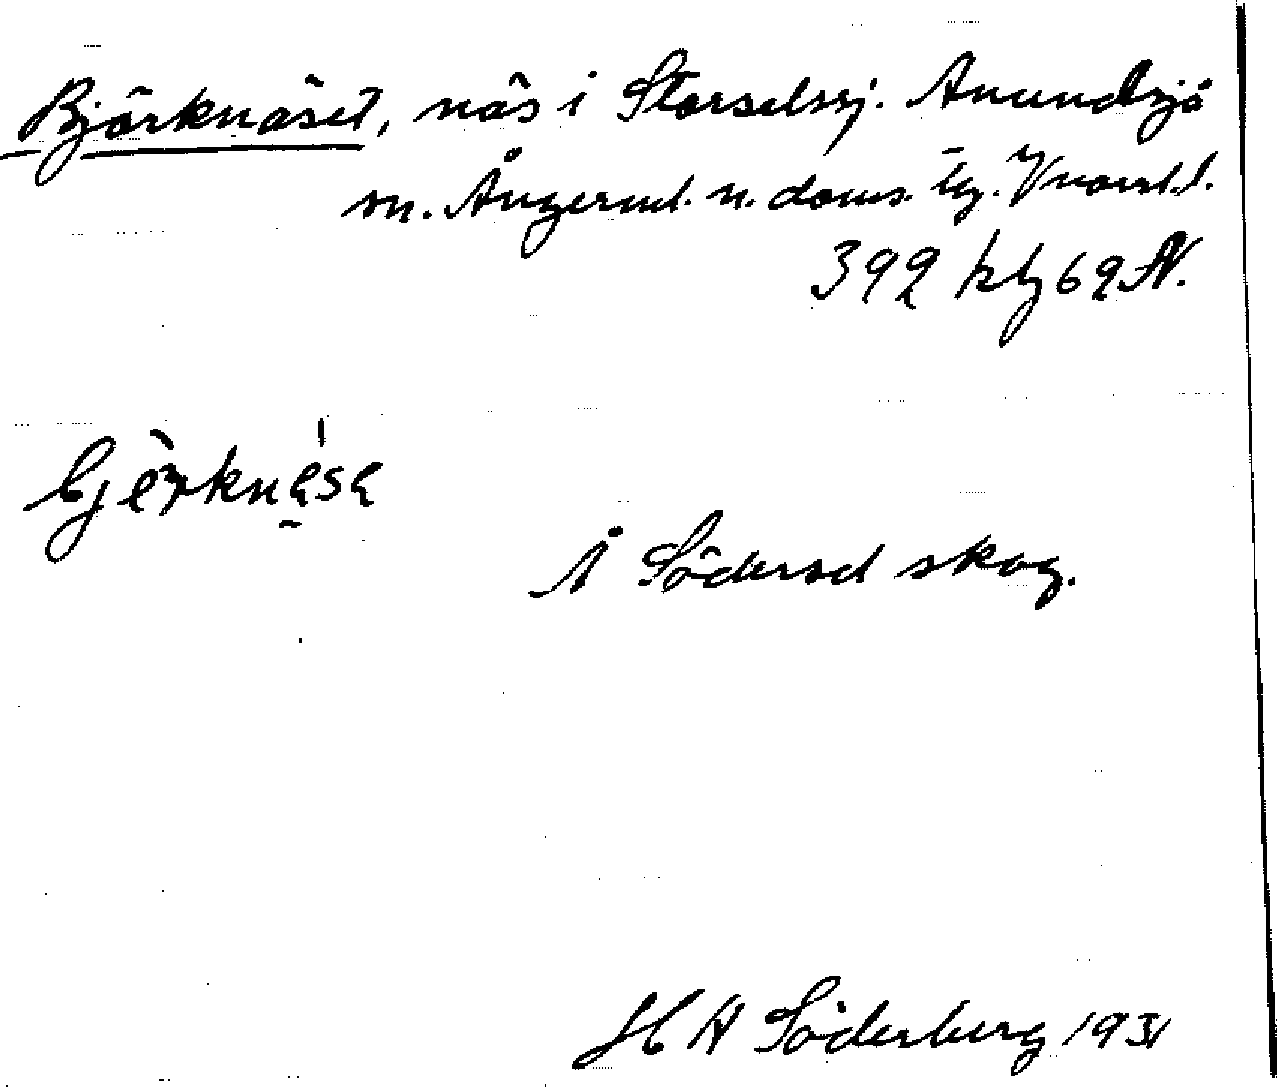 Björknäset, näs i Storselssj. Anundsjö
sn. Ångerml. n. doms. lg. Vnorrl. l.
392 kbg 62 N.
bjèrknésè
Å Södersel skog.
H A Söderberg 1931